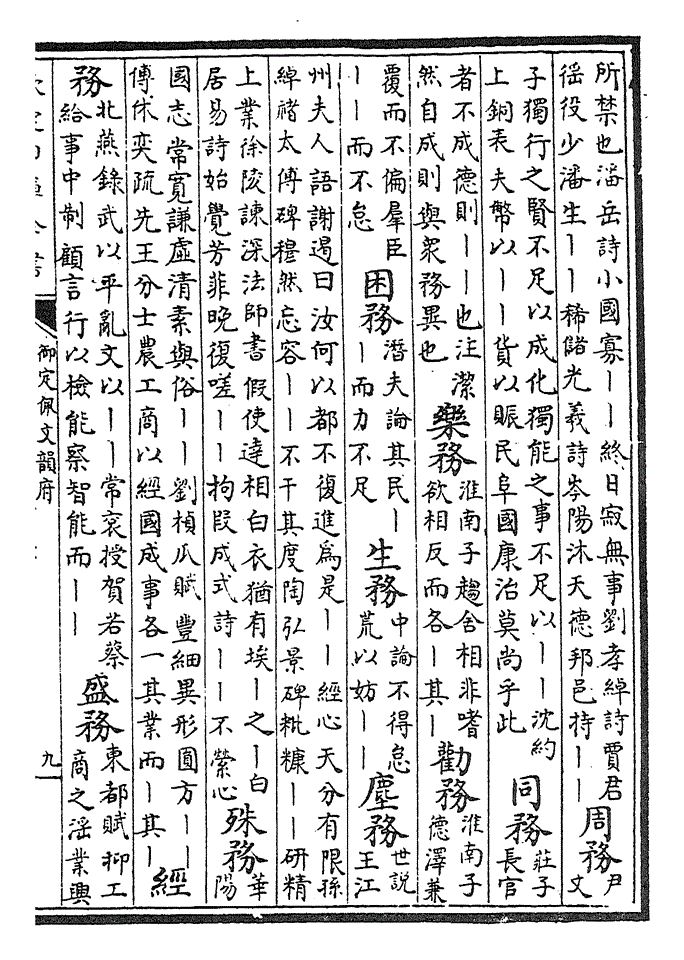 所禁也潘岳詩小國寡丨丨終日寂無事劉孝綽詩賈君
徭役少潘生丨丨稀儲光義詩岑陽沐天德邦邑持丨丨
周務
尹
文
子獨行之賢不足以成化獨能之事不足以丨丨沈約
上銅表夫幣以丨丨貨以賑民阜國康治莫尚乎此
同務
莊子
長官
者不成德則丨丨也注潔
然自成則與衆務異也
樂務
淮南子趨舍相非嗜
欲相反而各丨其丨
勸務
淮南子
德澤兼
覆而不偏羣臣
丨丨而不怠
困務
潛夫論其民丨
丨而力不足
生務
中論不得怠
荒以妨丨丨
塵務
世說
王江
州夫人語謝遏曰汝何以都不復進爲是丨丨經心天分有限孫
綽禇太傅碑穆然忘容丨丨不干其度陶弘景碑粃糠丨丨研精
上業徐陵諫深法師書假使達相白衣猶有埃丨之丨白
居易詩始覺芳菲晚復嗟丨丨拘段成式詩丨丨不縈心
殊務
華
陽
國志常寛謙虛清素與俗丨丨劉楨瓜賦豐細異形圓方丨丨
傅休奕疏先王分士農工商以經國成事各一其業而丨其丨
經
務
北燕錄武以平亂文以丨丨常衮授賀若蔡
給事中制顧言行以檢能察智能而丨丨
盛務
東都賦抑工
商之淫業興
御定佩文韻府
九